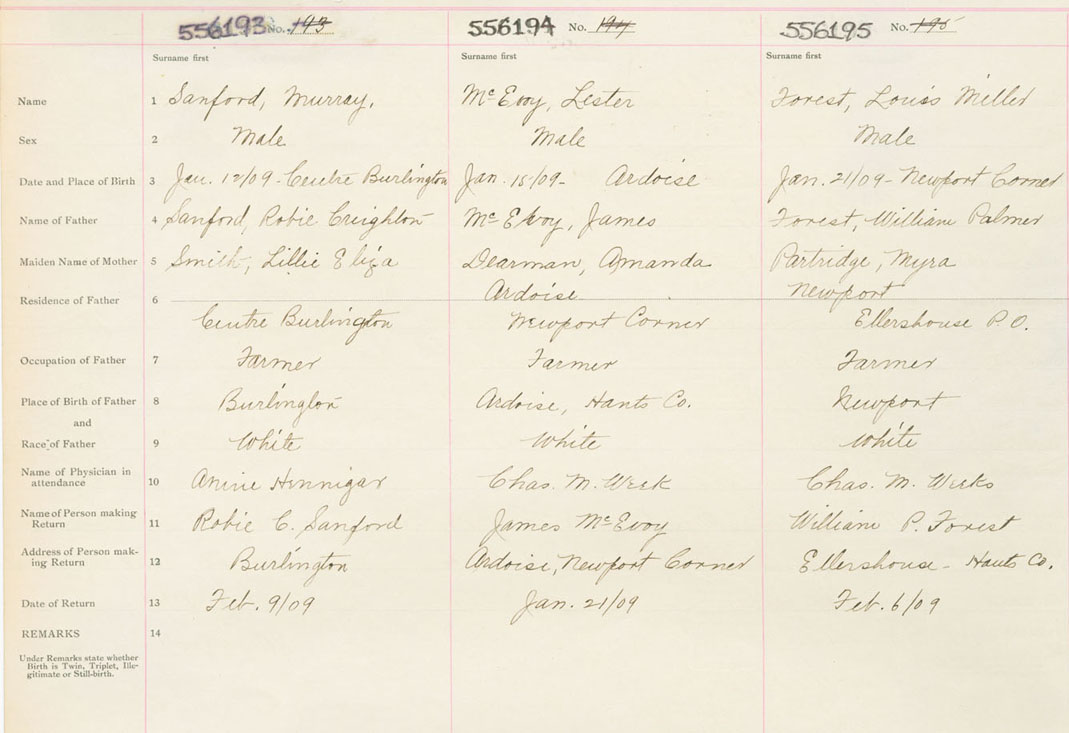 556193 No. 193 556194 No. 194 556195 No. 195
Surname first Surname first Surname first
Name 1 Sanford, Murray. McEvoy, Lester Forest, Louis Miller
Sex 2 Male Male Male
Date and Place of Birth 3 Jan. 12/09 - Centre Burlington Jan. 18/09 - Ardoise Jan. 21/09 - Newport Corner
Name of Father 4 Sanford, Robie Creighton McEvoy, James Forest, William Palmer
Maiden Name of Mother 5 Smith, Lillie Eliza Dearman, Amanda Partridge, Myra
Ardoise Newport
Residence of Father 6
Centre Burlington Newport Corner Ellershouse P.O.
Occupation of Father 7 Farmer Farmer Farmer
Place of Birth of Father 8 Burlington Ardoise, Hants Co. Newport
and
Race of Father 9 White White White
Name of Physician in
attendance 10 Annie Hennigar Chas. M. Week Chas. M. Weeks
Name of Person making
Return 11 Robie C. Sanford James McEvoy William P. Forest
Address of Person mak-
ing Return 12 Burlington Ardoise, Newport Corner Ellershouse - Hants Co.
Date of Return 13 Feb. 9/09 Jan. 21/09 Feb. 6/09
REMARKS 14
Under Remarks state whether
Birth is Twin, Triplet, Ille-
gitimate or Still-birth.